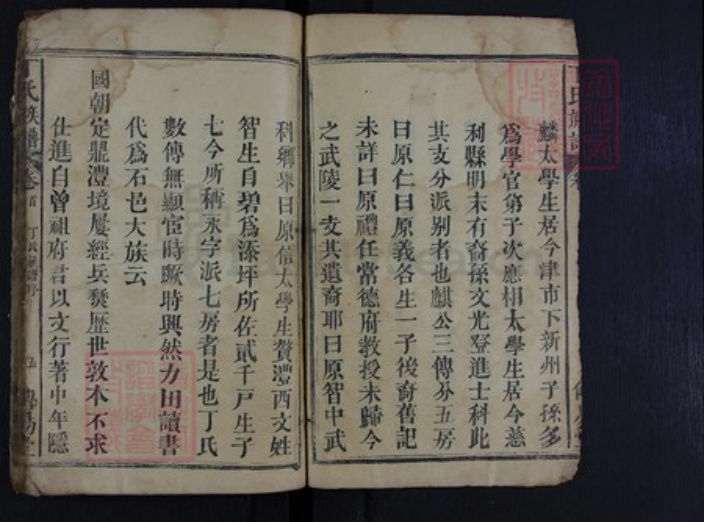 麟太學生居今津市下新州子孫多
爲學官第子次應相太學生居今慈
利縣明末有裔孫文光登進士科此
其支分派別者也麒公三傳分五房
曰原仁曰原義各生一子後裔舊記
未詳曰原禮任常德府教授未歸今
之武陵一支其遺裔耶曰原智中武
科鄉舉曰原信太學生贅澧西文姓
智生自碧爲添坪所佐貳千戸生子
七今所稱永字派七房者是也丁氏
數傳無顯宦時蹶時興然力田讀書
代爲石邑大族云
國朝定鼎澧境屢經兵燹歷世敦本不求
仕進自曾祖府君以文行著中年隱
丁氏族譜 卷首 五